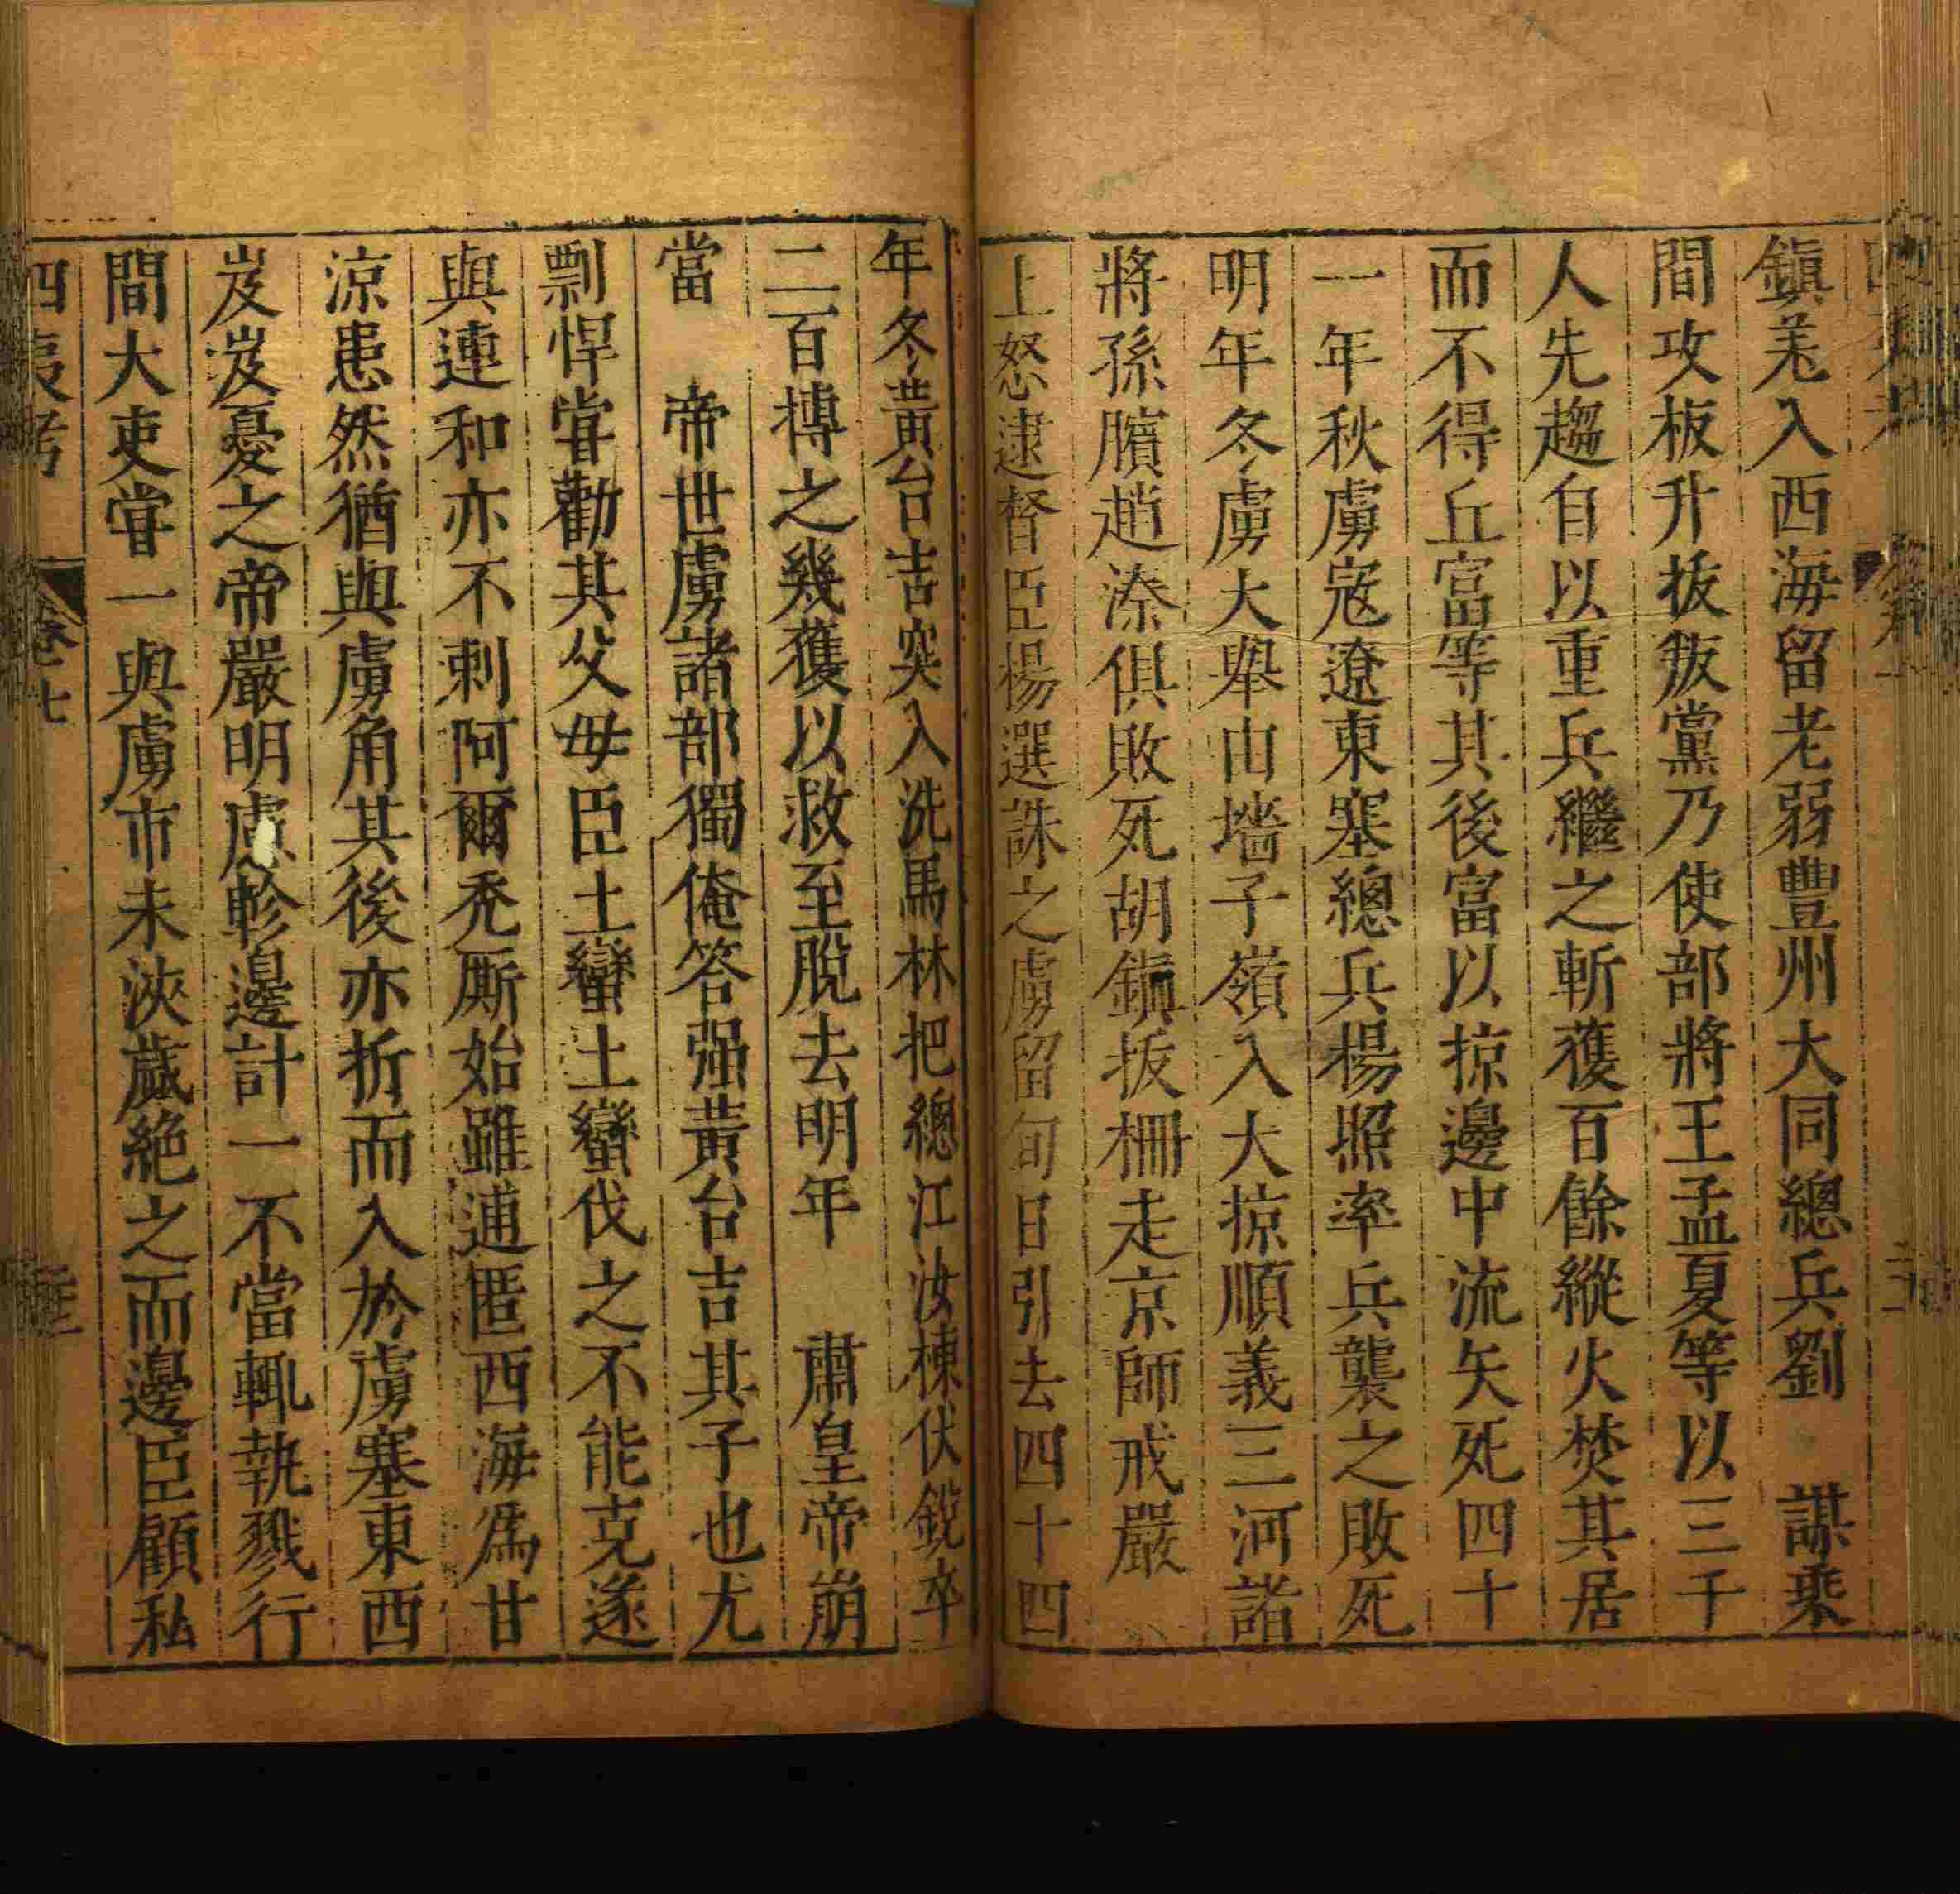 鎮羌入西海留老弱豐州大同總兵劉　謀乘
間攻板升拔叛黨乃使部將王孟夏等以三千
人先趨自以重兵繼之斬獲百餘縱火焚其居
而不得丘富等其後富以掠邊中流矢死四十
一年秋虜寇遼東塞總兵楊照率兵襲之敗死
明年冬虜大舉由墻子嶺入大掠順義三河諸
將孫臏趙溱俱敗死胡鎮拔柵走京師戒嚴
上怒逮督臣楊選誅之虜留旬日引去四十四
年冬黃台吉突入洗馬林把總江汝棟伏銳卒
二百搏之幾獲以救至脫去明年　肅皇帝崩
當　帝世虜諸部獨俺答强黃台吉其子也尤
剽悍嘗勸其父毋臣土蠻土蠻伐之不能克遂
與連和亦不剌阿爾禿厮始雖逋匿西海爲甘
涼患然猶與虜角其後亦折而入於虜塞東西
岌岌憂之帝嚴明慮軫邊計一不當輒執戮行
間大吏嘗一與虜市未浹歲絶之而邊臣顧私
四夷考　卷七